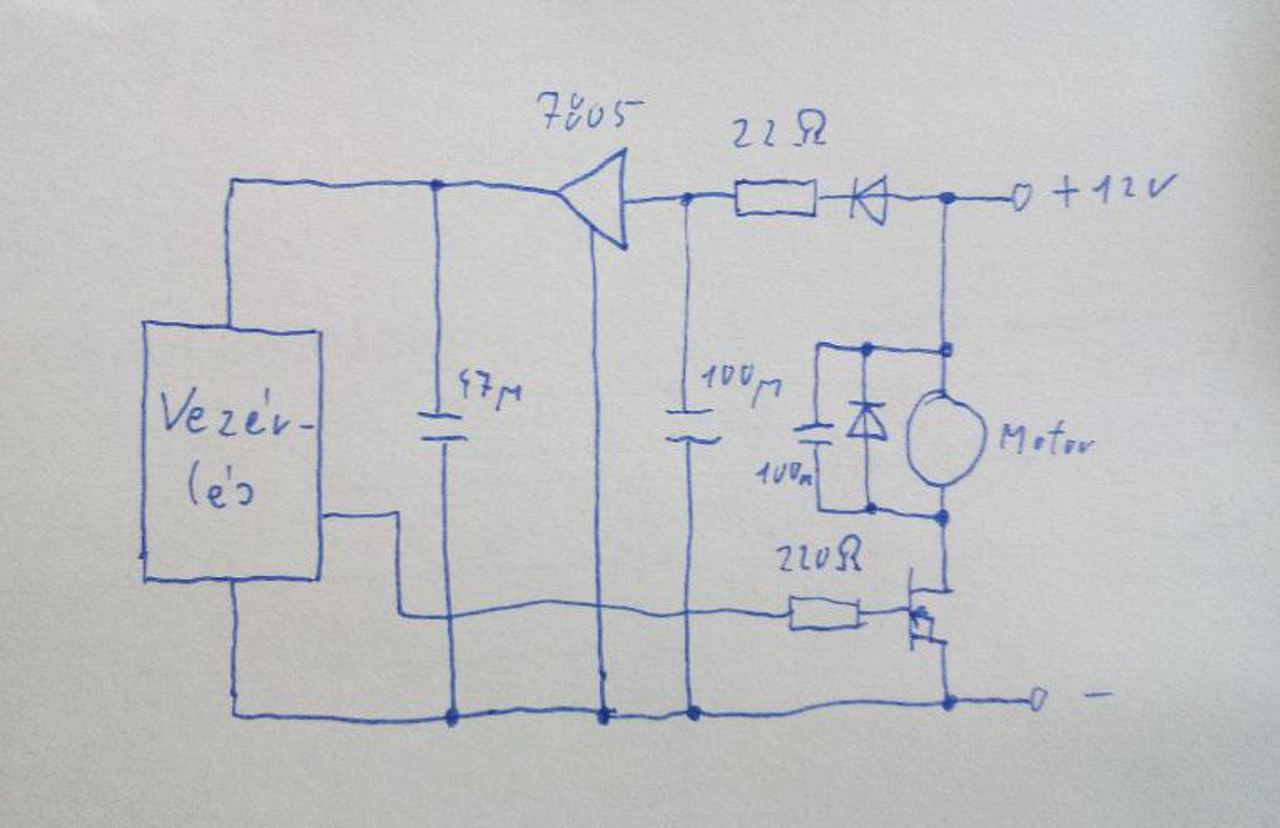 7805
22Ω
+12V
47μ
100μ
Vezér-
lés
100n
Motor
220Ω
-